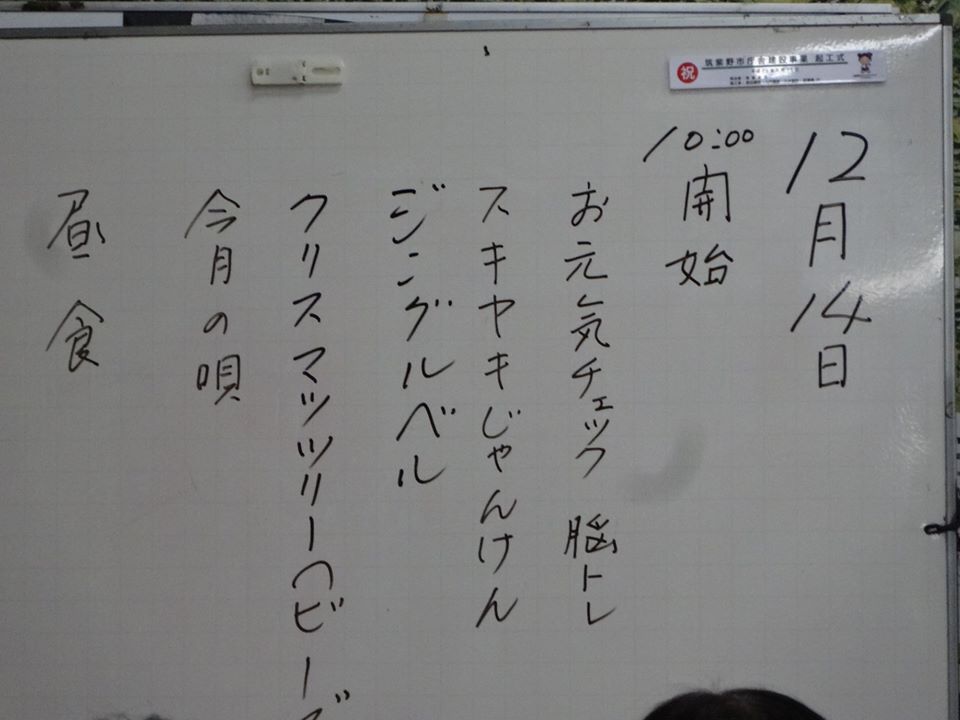 祝 筑紫野市庁舎建設事業 起工式
12月14日
10:00開始
お元気チェック 脳トレ
スキヤキじゃんけん
ジングルベル
クリスマツツリー(ビーズ
今月の唄
昼食